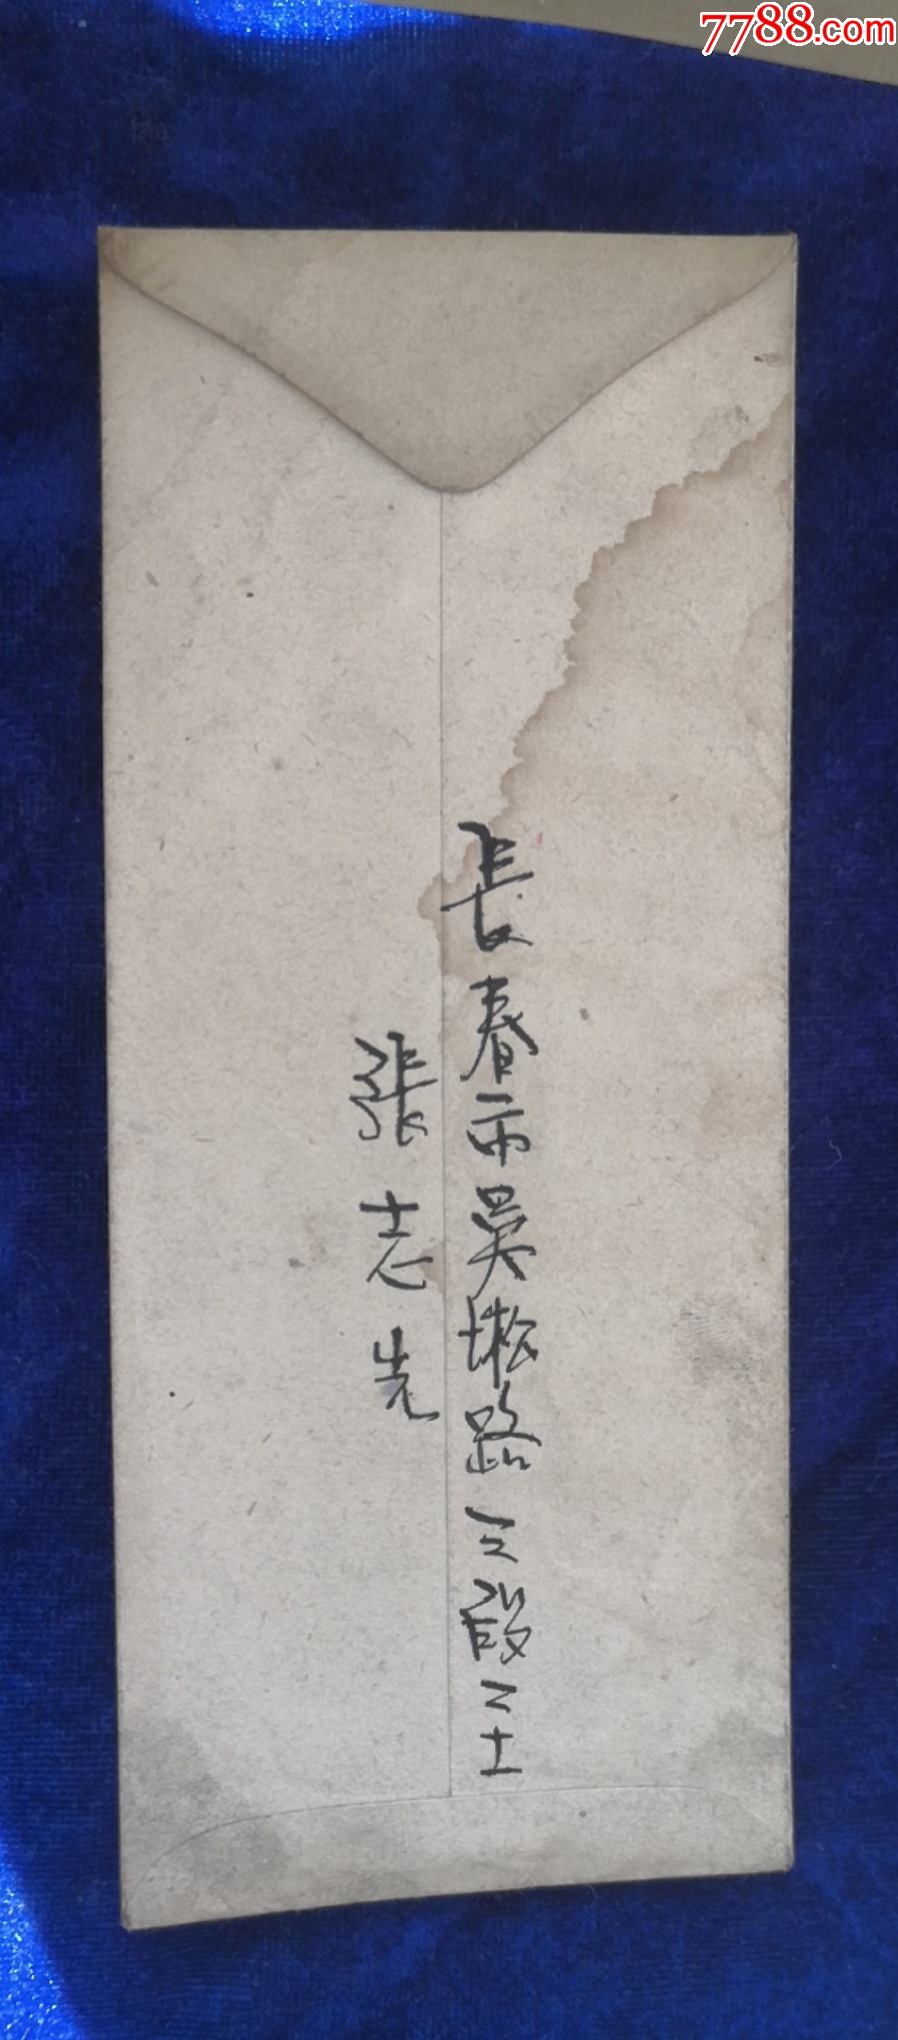 7788.com
長春市吳淞路三段二十
張志先